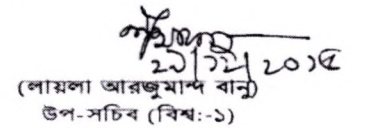 ২৯/১২/২০১৫
(লায়লা আরজুমান্দ বানু)
উপ-সচিব (বিশ্ব:-১)